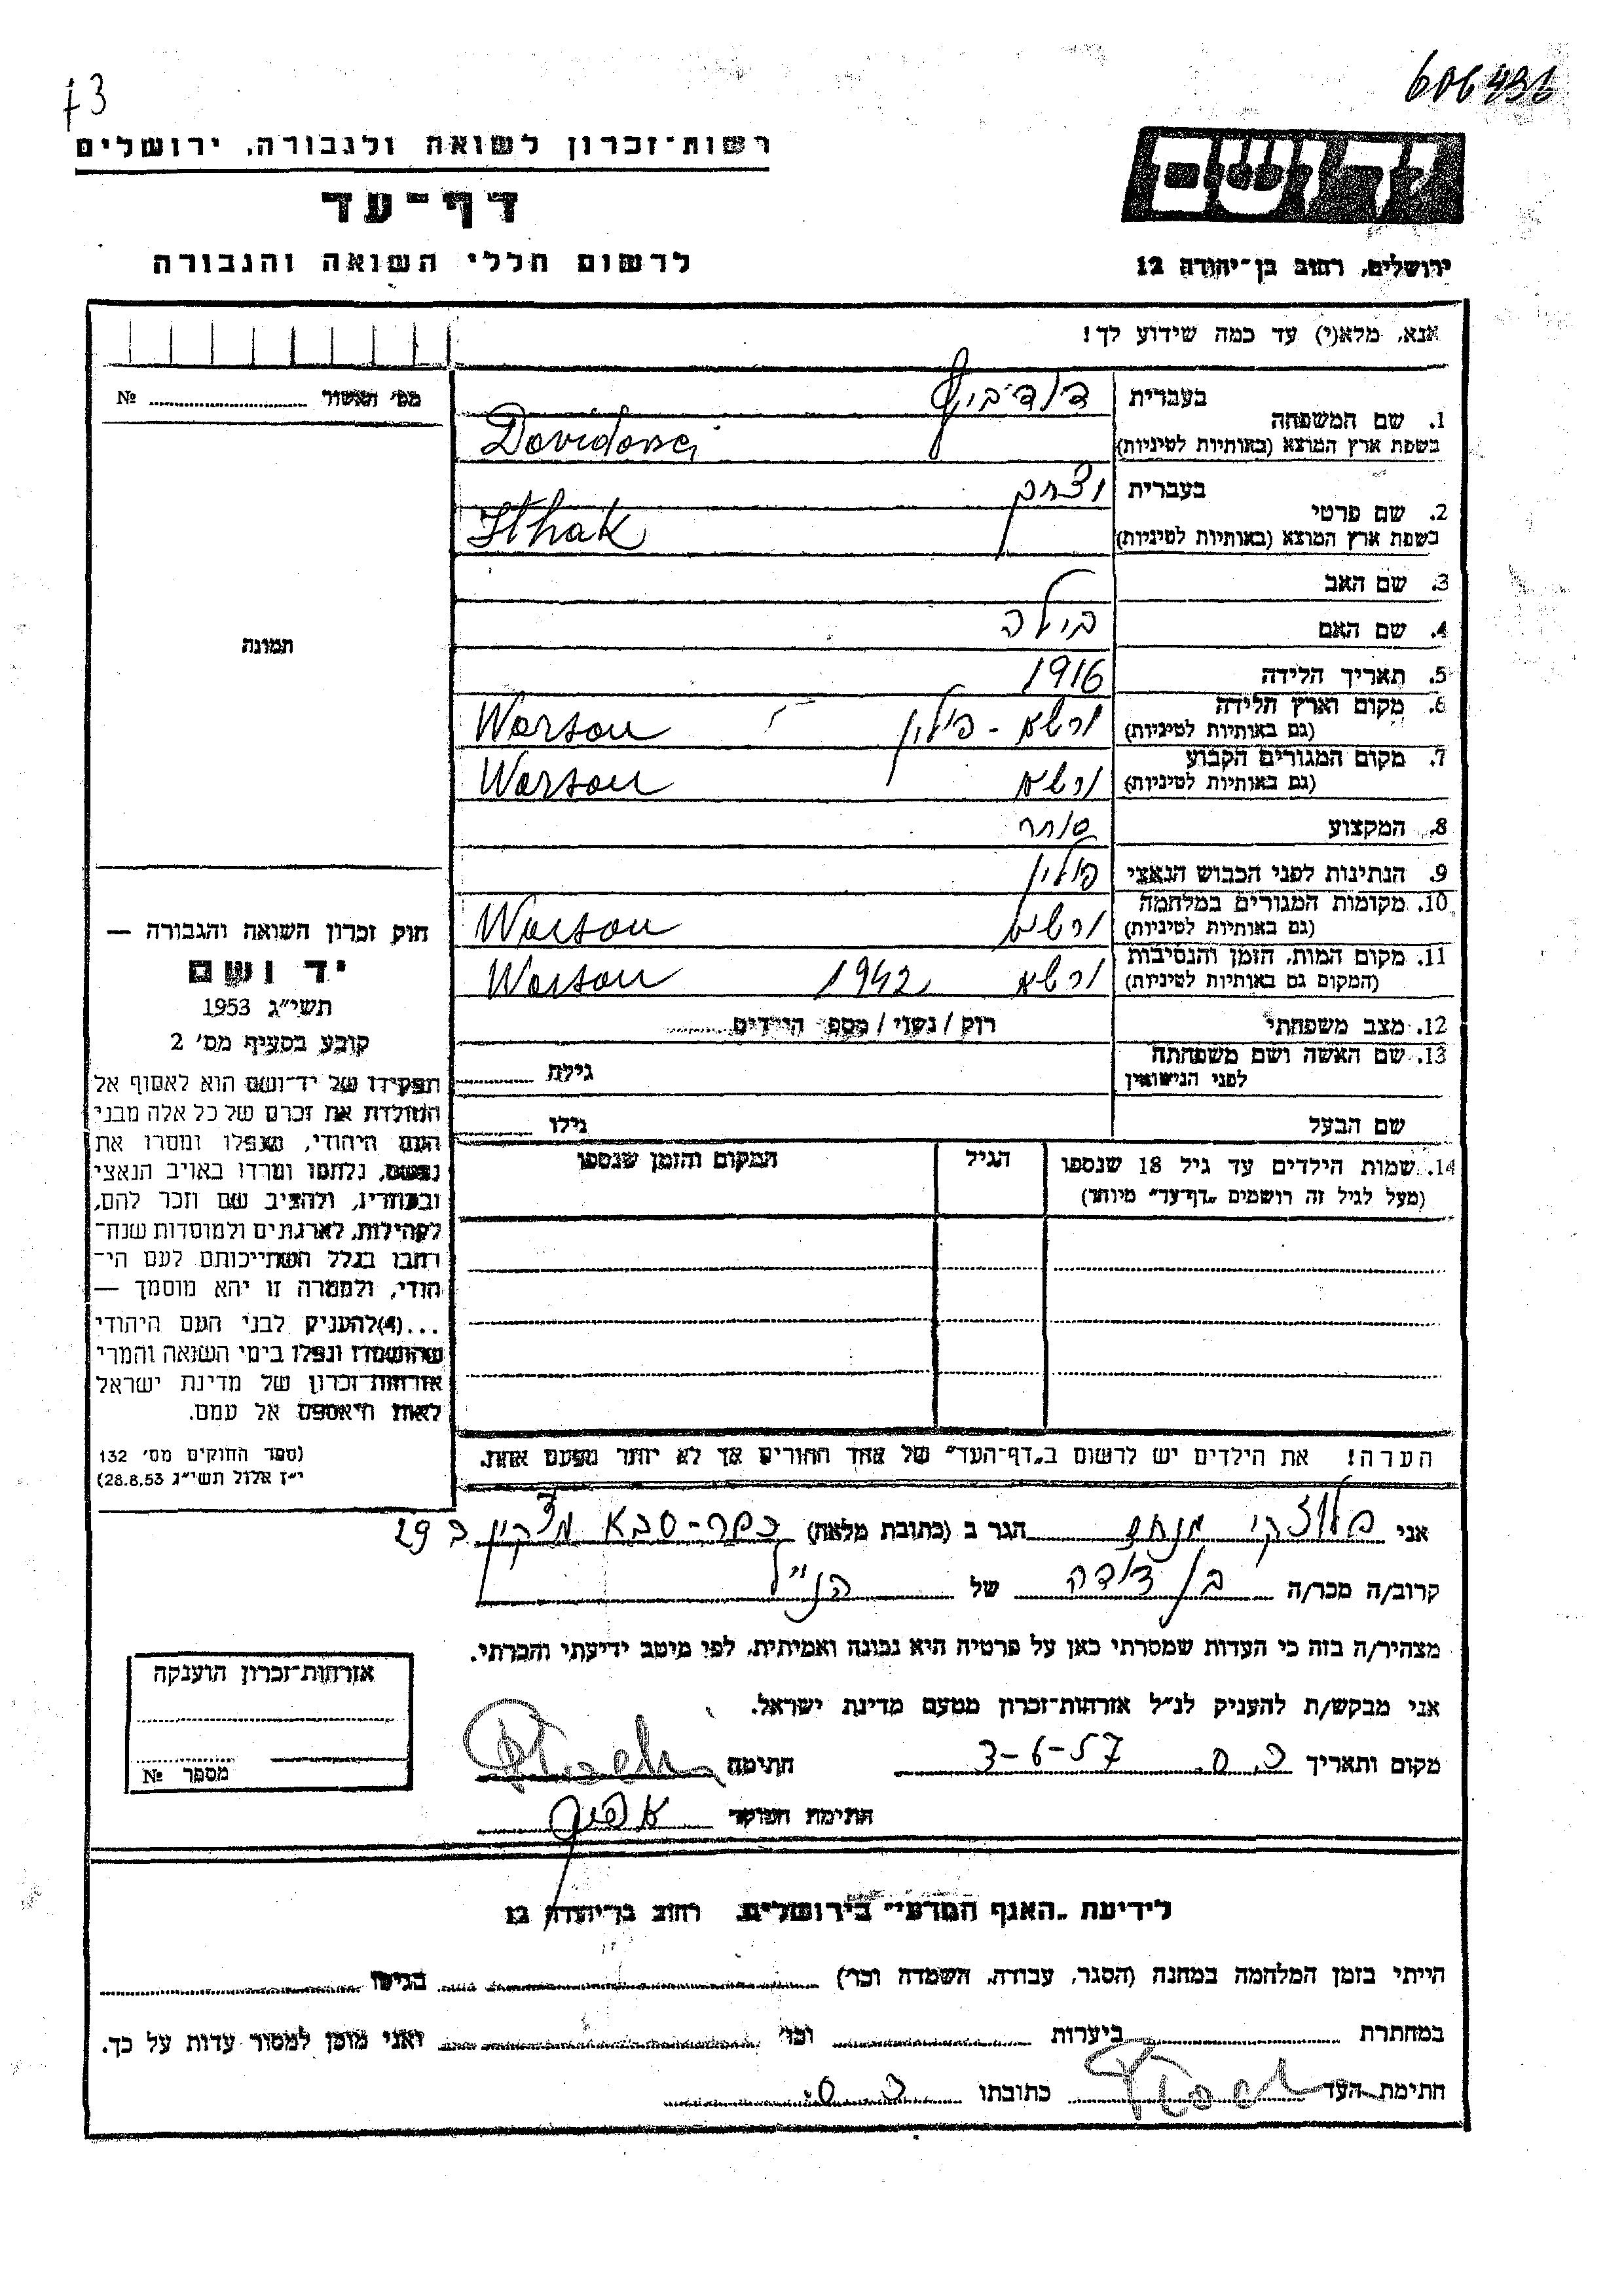 606436
73
רשות־זכרון לשואה ולגבורה, ירושלים
יד ושם
דף־עד
ירושלים, רחוב בן־יהודה 12
לרשום חללי השואה והגבורה
אנא, מלא(י) עד כמה שידוע לך!
מס׳ תאשור № 
1. שם המשפחה
בעברית
בשפת ארץ המוצא (באותיות לטיניות)
2. שם פרטי
בעברית יצחק
בשפת ארץ המוצא (באותיות לטיניות) Ithak
3. שם האב
4. שם האם בילה
5. תאריך הלידה 1916
6. מקום וארץ הלידה (גם באותיות לטיניות) ורשא - פולין Warsau
7. מקום המגורים הקבוע (גם באותיות לטיניות) ורשא Warsau
8. המקצוע סוחר
9. הנתינות לפני הכבוש הנאצי פולין
10. מקומות המגורים במלחמה (גם באותיות לטיניות) ורשא Warsau
11. מקום המות, הזמן והנסיבות (המקום גם באותיות לטיניות) ורשא 1942 Warsau
12. מצב משפחתי רוק / נשוי / מספר הילדים
13. שם האשה ושם משפחתה לפני הנישואין גילה
שם הבעל גילו
14. שמות הילדים עד גיל 18 שנספו
(מעל לגיל זה רושמים „דף־עד״ מיוחד)
הגיל
המקום והזמן שנספו
הערה! את הילדים יש לרשום ב„דף־העד״ של אחד ההורים אך לא יותר מפעם אחת.
תמונה
חוק זכרון השואה והגבורה —
יד ושם
תשי״ג 1953
קובע בסעיף מס׳ 2
תפקידו של יד־ושם הוא לאסוף אל
המולדת את זכרם של כל אלה מבני
העם היהודי, שנפלו ומסרו את
נפשם, נלחמו ומרדו באויב הנאצי
ובעוזריו, ולהציב שם וזכר להם,
לקהילות, לארגונים ולמוסדות שנח־
רבו בגלל השתייכותם לעם הי־
הודי, ולמטרה זו יהא מוסמך —
...(4)להעניק לבני העם היהודי
שהושמדו ונפלו בימי השואה והמרי
אזרחות־זכרון של מדינת ישראל
לאות היאספם אל עמם.
(ספר החוקים מס׳ 132
י״ז אלול תשי״ג 28.8.53)
אני מנחם הגר ב (כתובת מלאה) כפר-סבא 29
קרוב/ה מכר/ה בן דודה של הנ״ל
מצהיר/ה בזה כי העדות שמסרתי כאן על פרטיה היא נכונה ואמיתית, לפי מיטב ידיעתי והכרתי.
אני מבקש/ת להעניק לנ״ל אזרחות־זכרון מטעם מדינת ישראל.
מקום ותאריך כ.ס. 3-6-57 חתימה
חתימת הפוקד
אזרחות־זכרון הוענקה
מספר №
לידיעת „האגף המדעי״ בירושלים, רחוב בן־יהודה 12
הייתי בזמן המלחמה במחנה (הסגר, עבודה, השמדה וכו׳) בגיטו
במחתרת ביערות וכו׳ ואני מוכן למסור עדות על כך.
חתימת העד כתובתו כ.ס.